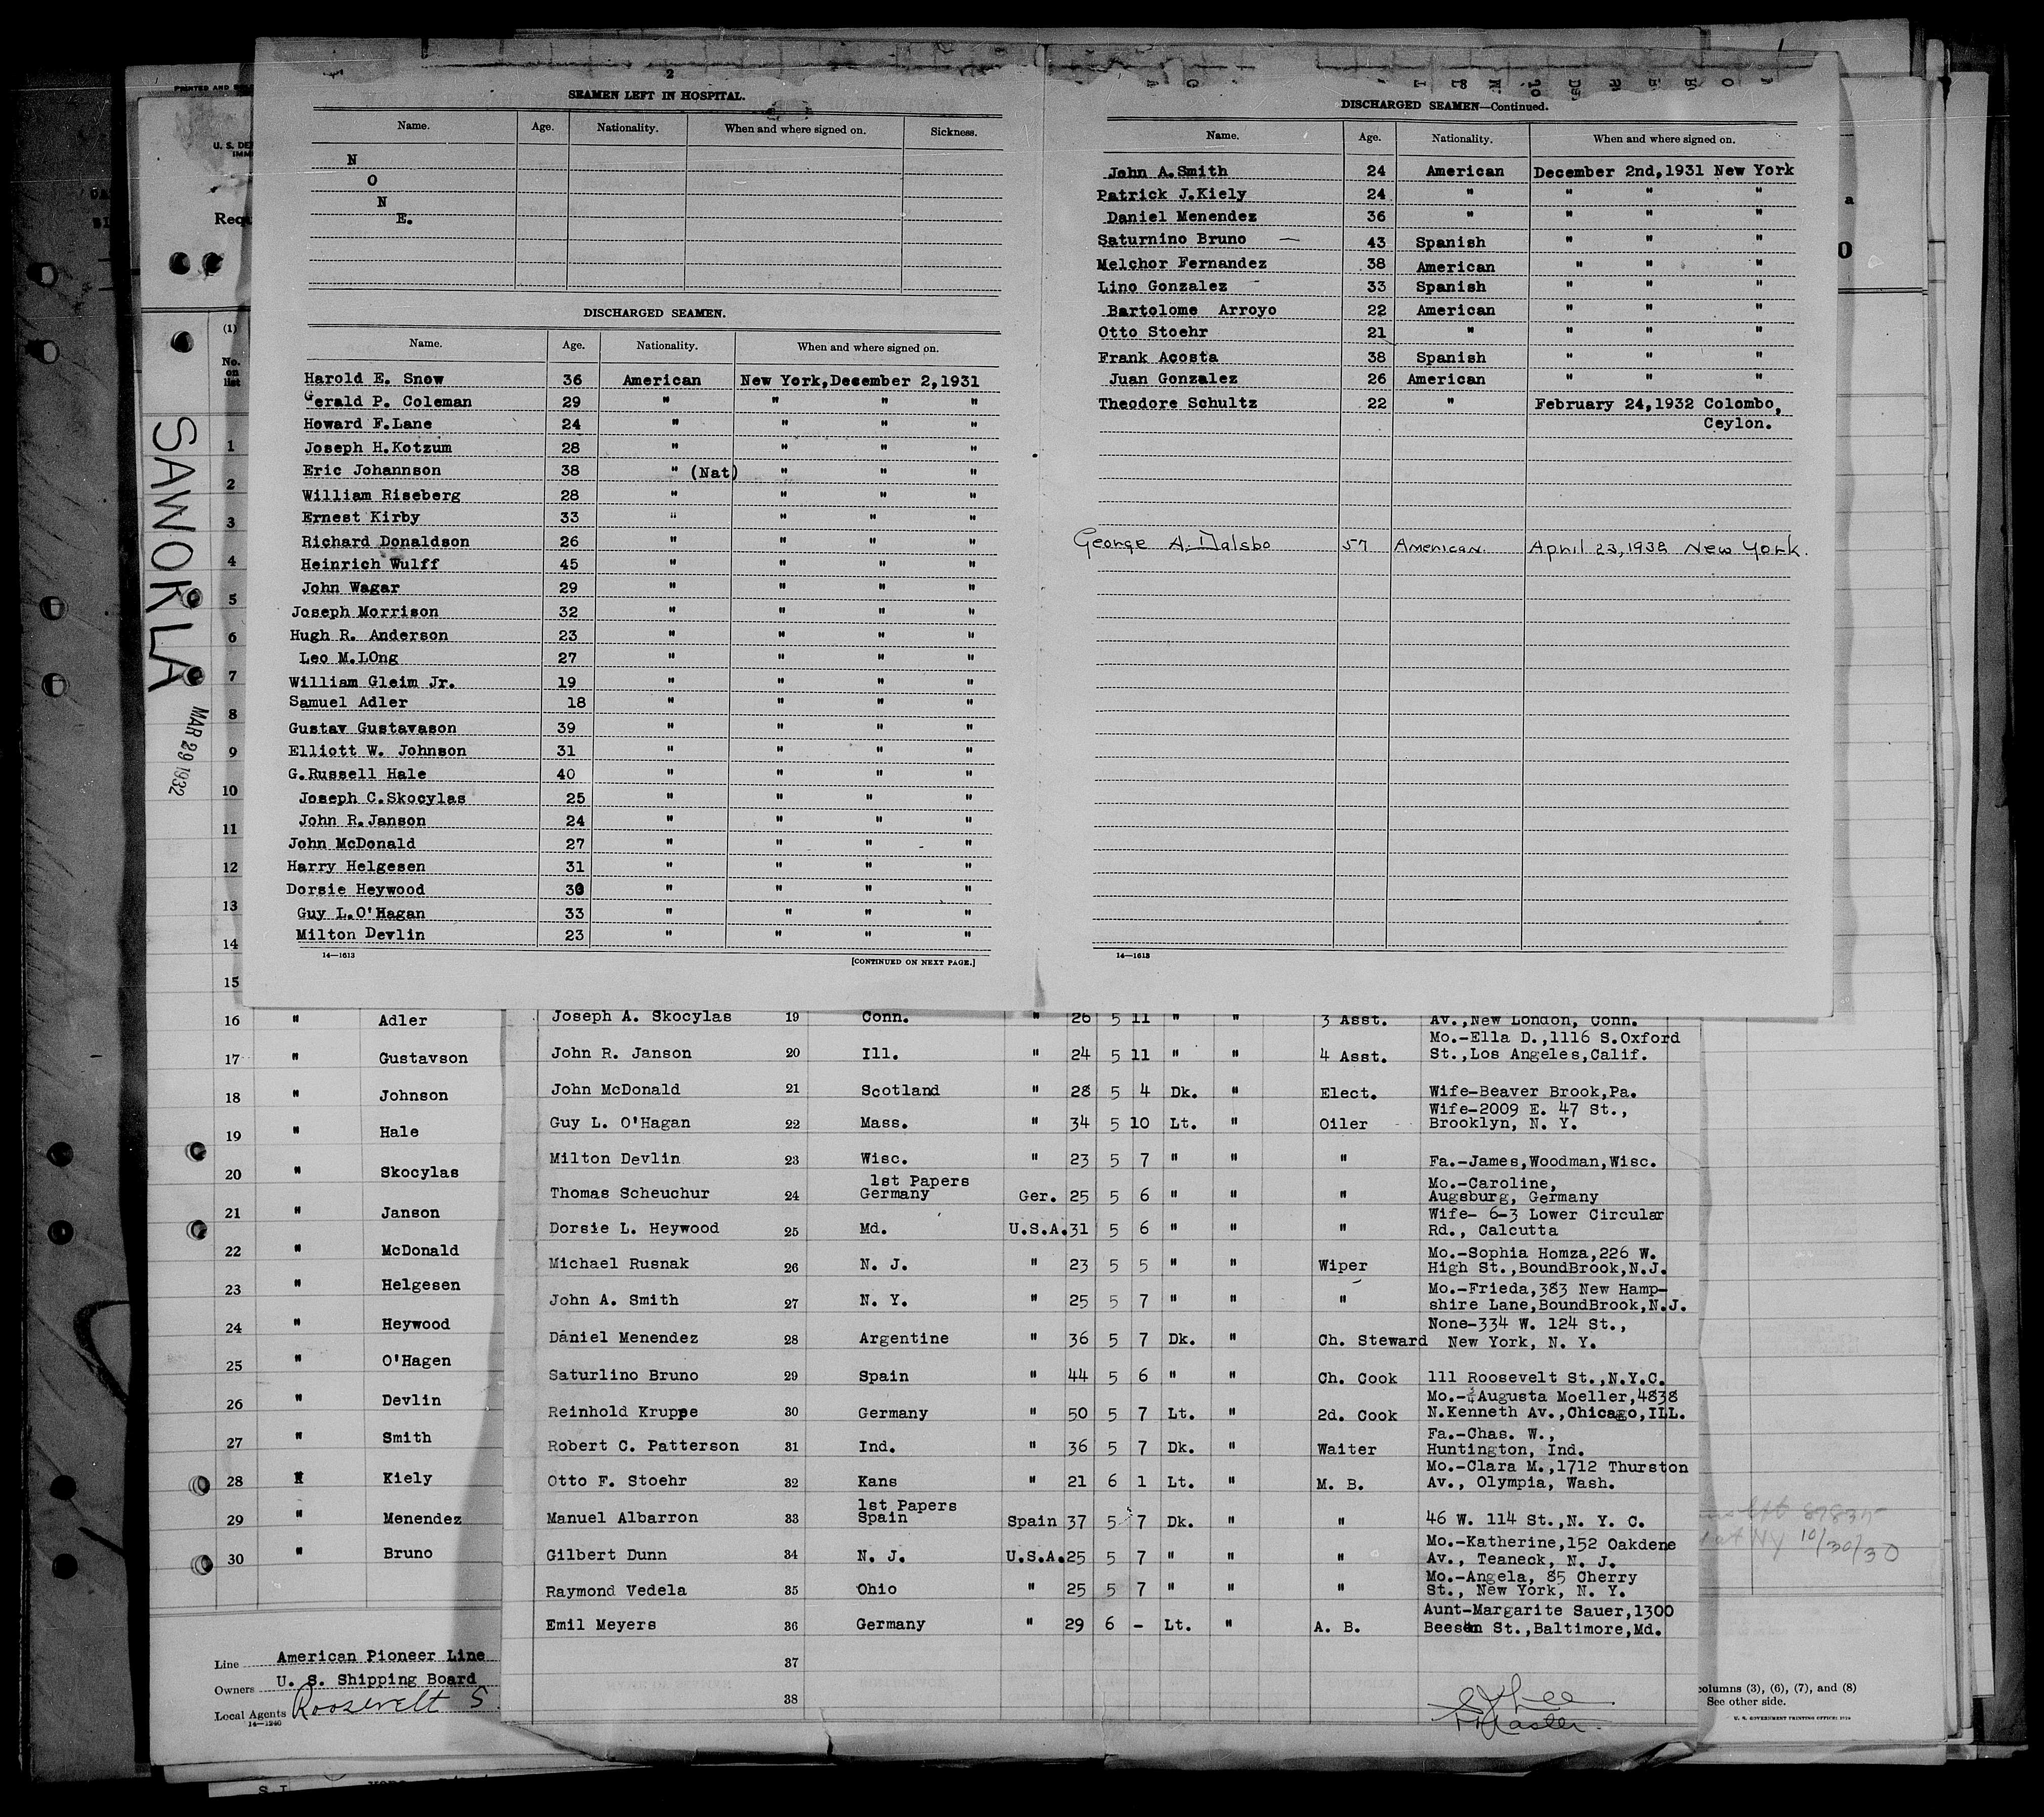 PRINTED AND
U. S. DE
IMM
Requ
(1)
No.
on
list
SAWOKLA
MAR 29 1932
2
SEAMEN LEFT IN HOSPITAL.
Name. Age. Nationality. When and where signed on. Sickness.
N
O
N
E.
DISCHARGED SEAMEN.
Name. Age. Nationality. When and where signed on.
Harold E. Snow 36 American New York,December 2,1931
Gerald P. Coleman 29 " " " "
Howard F.Lane 24 " " " "
Joseph H.Kotzum 28 " " " "
Eric Johannson 38 " (Nat) " " "
William Riseberg 28 " " " "
Ernest Kirby 33 " " " "
Richard Donaldson 26 " " " "
Heinrich Wulff 45 " " " "
John Wagar 29 " " " "
Joseph Morrison 32 " " " "
Hugh R. Anderson 23 " " " "
Leo M.LOng 27 " " " "
William Gleim Jr. 19 " " " "
Samuel Adler 18 " " " "
Gustav Gustavason 39 " " " "
Elliott W. Johnson 31 " " " "
G.Russell Hale 40 " " " "
Joseph C.Skocylas 25 " " " "
John R.Janson 24 " " " "
John McDonald 27 " " " "
Harry Helgesen 31 " " " "
Dorsie Heywood 30 " " " "
Guy L.O'Hagan 33 " " " "
Milton Devlin 23 " " " "
14—1613 [CONTINUED ON NEXT PAGE.]
DISCHARGED SEAMEN—Continued.
Name. Age. Nationality. When and where signed on.
John A.Smith 24 American December 2nd,1931 New York
Patrick J.Kiely 24 " " " "
Daniel Menendez 36 " " " "
Saturnino Bruno — 43 Spanish " " "
Melchor Fernandez 38 American " " "
Lino Gonzalez 33 Spanish " " "
Bartolome Arroyo 22 American " " "
Otto Stoehr 21 " " " "
Frank Acosta 38 Spanish " " "
Juan Gonzalez 26 American " " "
Theodore Schultz 22 " February 24,1932 Colombo,
Ceylon.
George A. Dalsbo 57 American. April 23,1938 New York.
14—1613
1
2
3
4
5
6
7
8
9
10
11
12
13
14
15
16 " Adler
17 " Gustavson
18 " Johnson
19 " Hale
20 " Skocylas
21 " Janson
22 " McDonald
23 " Helgesen
24 " Heywood
25 " O'Hagen
26 " Devlin
27 " Smith
28 " Kiely
29 " Menendez
30 " Bruno
Line American Pioneer Line
Owners U. S. Shipping Board
Local Agents Roosevelt S
14—1240
Joseph A. Skocylas 19 Conn. " 26 5 11 " " 3 Asst. Av.,New London, Conn.
Mo.-Ella D.,1116 S.Oxford
John R. Janson 20 Ill. " 24 5 11 " " 4 Asst. St.,Los Angeles,Calif.
John McDonald 21 Scotland " 28 5 4 Dk. " Elect. Wife-Beaver Brook,Pa.
Wife-2009 E. 47 St.,
Guy L. O'Hagan 22 Mass. " 34 5 10 Lt. " Oiler Brooklyn, N. Y.
Milton Devlin 23 Wisc. " 23 5 7 " " " Fa.-James,Woodman,Wisc.
1st Papers Mo.-Caroline,
Thomas Scheuchur 24 Germany Ger. 25 5 6 " " " Augsburg, Germany
Wife- 6-3 Lower Circular
Dorsie L. Heywood 25 Md. U.S.A. 31 5 6 " " " Rd., Calcutta
Mo.-Sophia Homza,226 W.
Michael Rusnak 26 N. J. " 23 5 5 " " Wiper High St.,BoundBrook,N.J.
Mo.-Frieda,383 New Hamp-
John A. Smith 27 N. Y. " 25 5 7 " " " shire Lane,BoundBrook,N.J.
None-334 W. 124 St.,
Daniel Menendez 28 Argentine " 36 5 7 Dk. " Ch. Steward New York, N. Y.
Saturlino Bruno 29 Spain " 44 5 6 " " Ch. Cook 111 Roosevelt St.,N.Y.C.
Mo.-Augusta Moeller,4838
Reinhold Kruppe 30 Germany " 50 5 7 Lt. " 2d. Cook N.Kenneth Av.,Chicago,ILL.
Fa.-Chas. W.,
Robert C. Patterson 31 Ind. " 36 5 7 Dk. " Waiter Huntington, Ind.
Mo.-Clara M.,1712 Thurston
Otto F. Stoehr 32 Kans " 21 6 1 Lt. " M. B. Av., Olympia, Wash.
1st Papers
Manuel Albarron 33 Spain Spain 37 5 7 Dk. " " 46 W. 114 St.,N. Y. C.
Mo.-Katherine,152 Oakdene
Gilbert Dunn 34 N. J. U.S.A. 25 5 7 " " " Av., Teaneck, N. J.
Mo.-Angela, 85 Cherry
Raymond Vedela 35 Ohio " 25 5 7 " " " St., New York, N. Y.
Aunt-Margarite Sauer,1300
Emil Meyers 36 Germany " 29 6 - Lt. " A. B. Beeson St.,Baltimore,Md.
37
38
Master.
87835
at NY 10/30/30
columns (3), (6), (7), and (8)
See other side.
U. S. GOVERNMENT PRINTING OFFICE